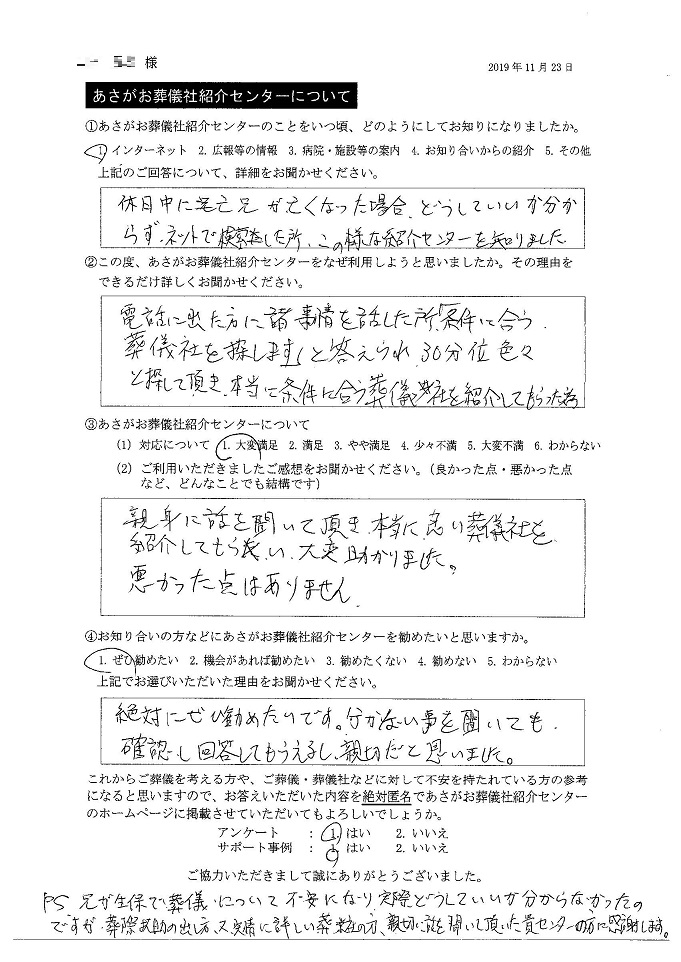 様
2019年11月23日
あさがお葬儀社紹介センターについて
①あさがお葬儀社紹介センターのことをいつ頃、どのようにしてお知りになりましたか。
1. インターネット 2. 広報等の情報 3. 病院・施設等の案内 4. お知り合いからの紹介 5. その他
上記のご回答について、詳細をお聞かせください。
休日中に 兄が亡くなった場合、どうしていいか分か
らず、ネットで検索した所、この様な紹介センターを知りました
②この度、あさがお葬儀社紹介センターをなぜ利用しようと思いましたか。その理由を
できるだけ詳しくお聞かせください。
電話に出た方に諸事情を話した所「条件に合う
葬儀社を探します」と答えられ、30分位色々
と探して頂き、本当に条件に合う葬儀社を紹介してもらった為
③あさがお葬儀社紹介センターについて
(1) 対応について 1. 大変満足 2. 満足 3. やや満足 4. 少々不満 5. 大変不満 6. わからない
(2) ご利用いただきましたご感想をお聞かせください。（良かった点・悪かった点
など、どんなことでも結構です）
親身に話を聞いて頂き、本当に良い葬儀社を
紹介してもらい、大変助かりました。
悪かった点はありません。
④お知り合いの方などにあさがお葬儀社紹介センターを勧めたいと思いますか。
1. ぜひ勧めたい 2. 機会があれば勧めたい 3. 勧めたくない 4. 勧めない 5. わからない
上記でお選びいただいた理由をお聞かせください。
絶対にぜひ勧めたいです。分からない事を聞いても、
確認し回答してもらえるし、親切だと思いました。
これからご葬儀を考える方や、ご葬儀・葬儀社などに対して不安を持たれている方の参考
になると思いますので、お答えいただいた内容を絶対匿名であさがお葬儀社紹介センター
のホームページに掲載させていただいてもよろしいでしょうか。
アンケート : 1. はい 2. いいえ
サポート事例 : 1. はい 2. いいえ
ご協力いただきまして誠にありがとうございました。
PS 兄が生保で葬儀について不安になり、実際どうしていいか分からなかったの
ですが、葬祭扶助の出し方、又実情に詳しい葬儀社の方、親切に話を聞いて頂いた貴センターの方に感謝します。